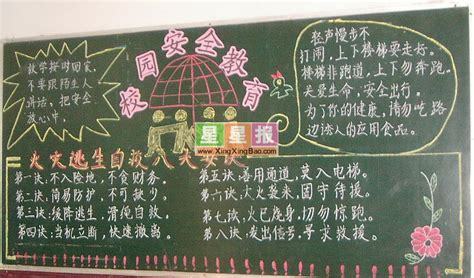 校园安全教育
放学按时回家,
不要跟陌生人
讲话, 把安全
放心中。
轻声慢步不
打闹, 上下楼梯要走好。
楼梯非跑道, 上下勿奔跑。
关爱生命, 安全出行。
为了你的健康, 请勿吃路
边诱人的应用食品。
星星报
www.XingXingBao.com
火灾逃生自救八大
第一诀: 不入险地, 不贪财务。
第二诀: 简易防护, 不可缺少。
第三诀: 缓降逃生, 滑绳自救。
第四诀: 当机立断, 快速撤离。
第五诀: 善用通道, 莫入电梯。
第六诀: 大火袭来, 固守待援。
第七诀: 火已烧身, 切勿惊跑。
第八诀: 发出信号, 寻求救援。